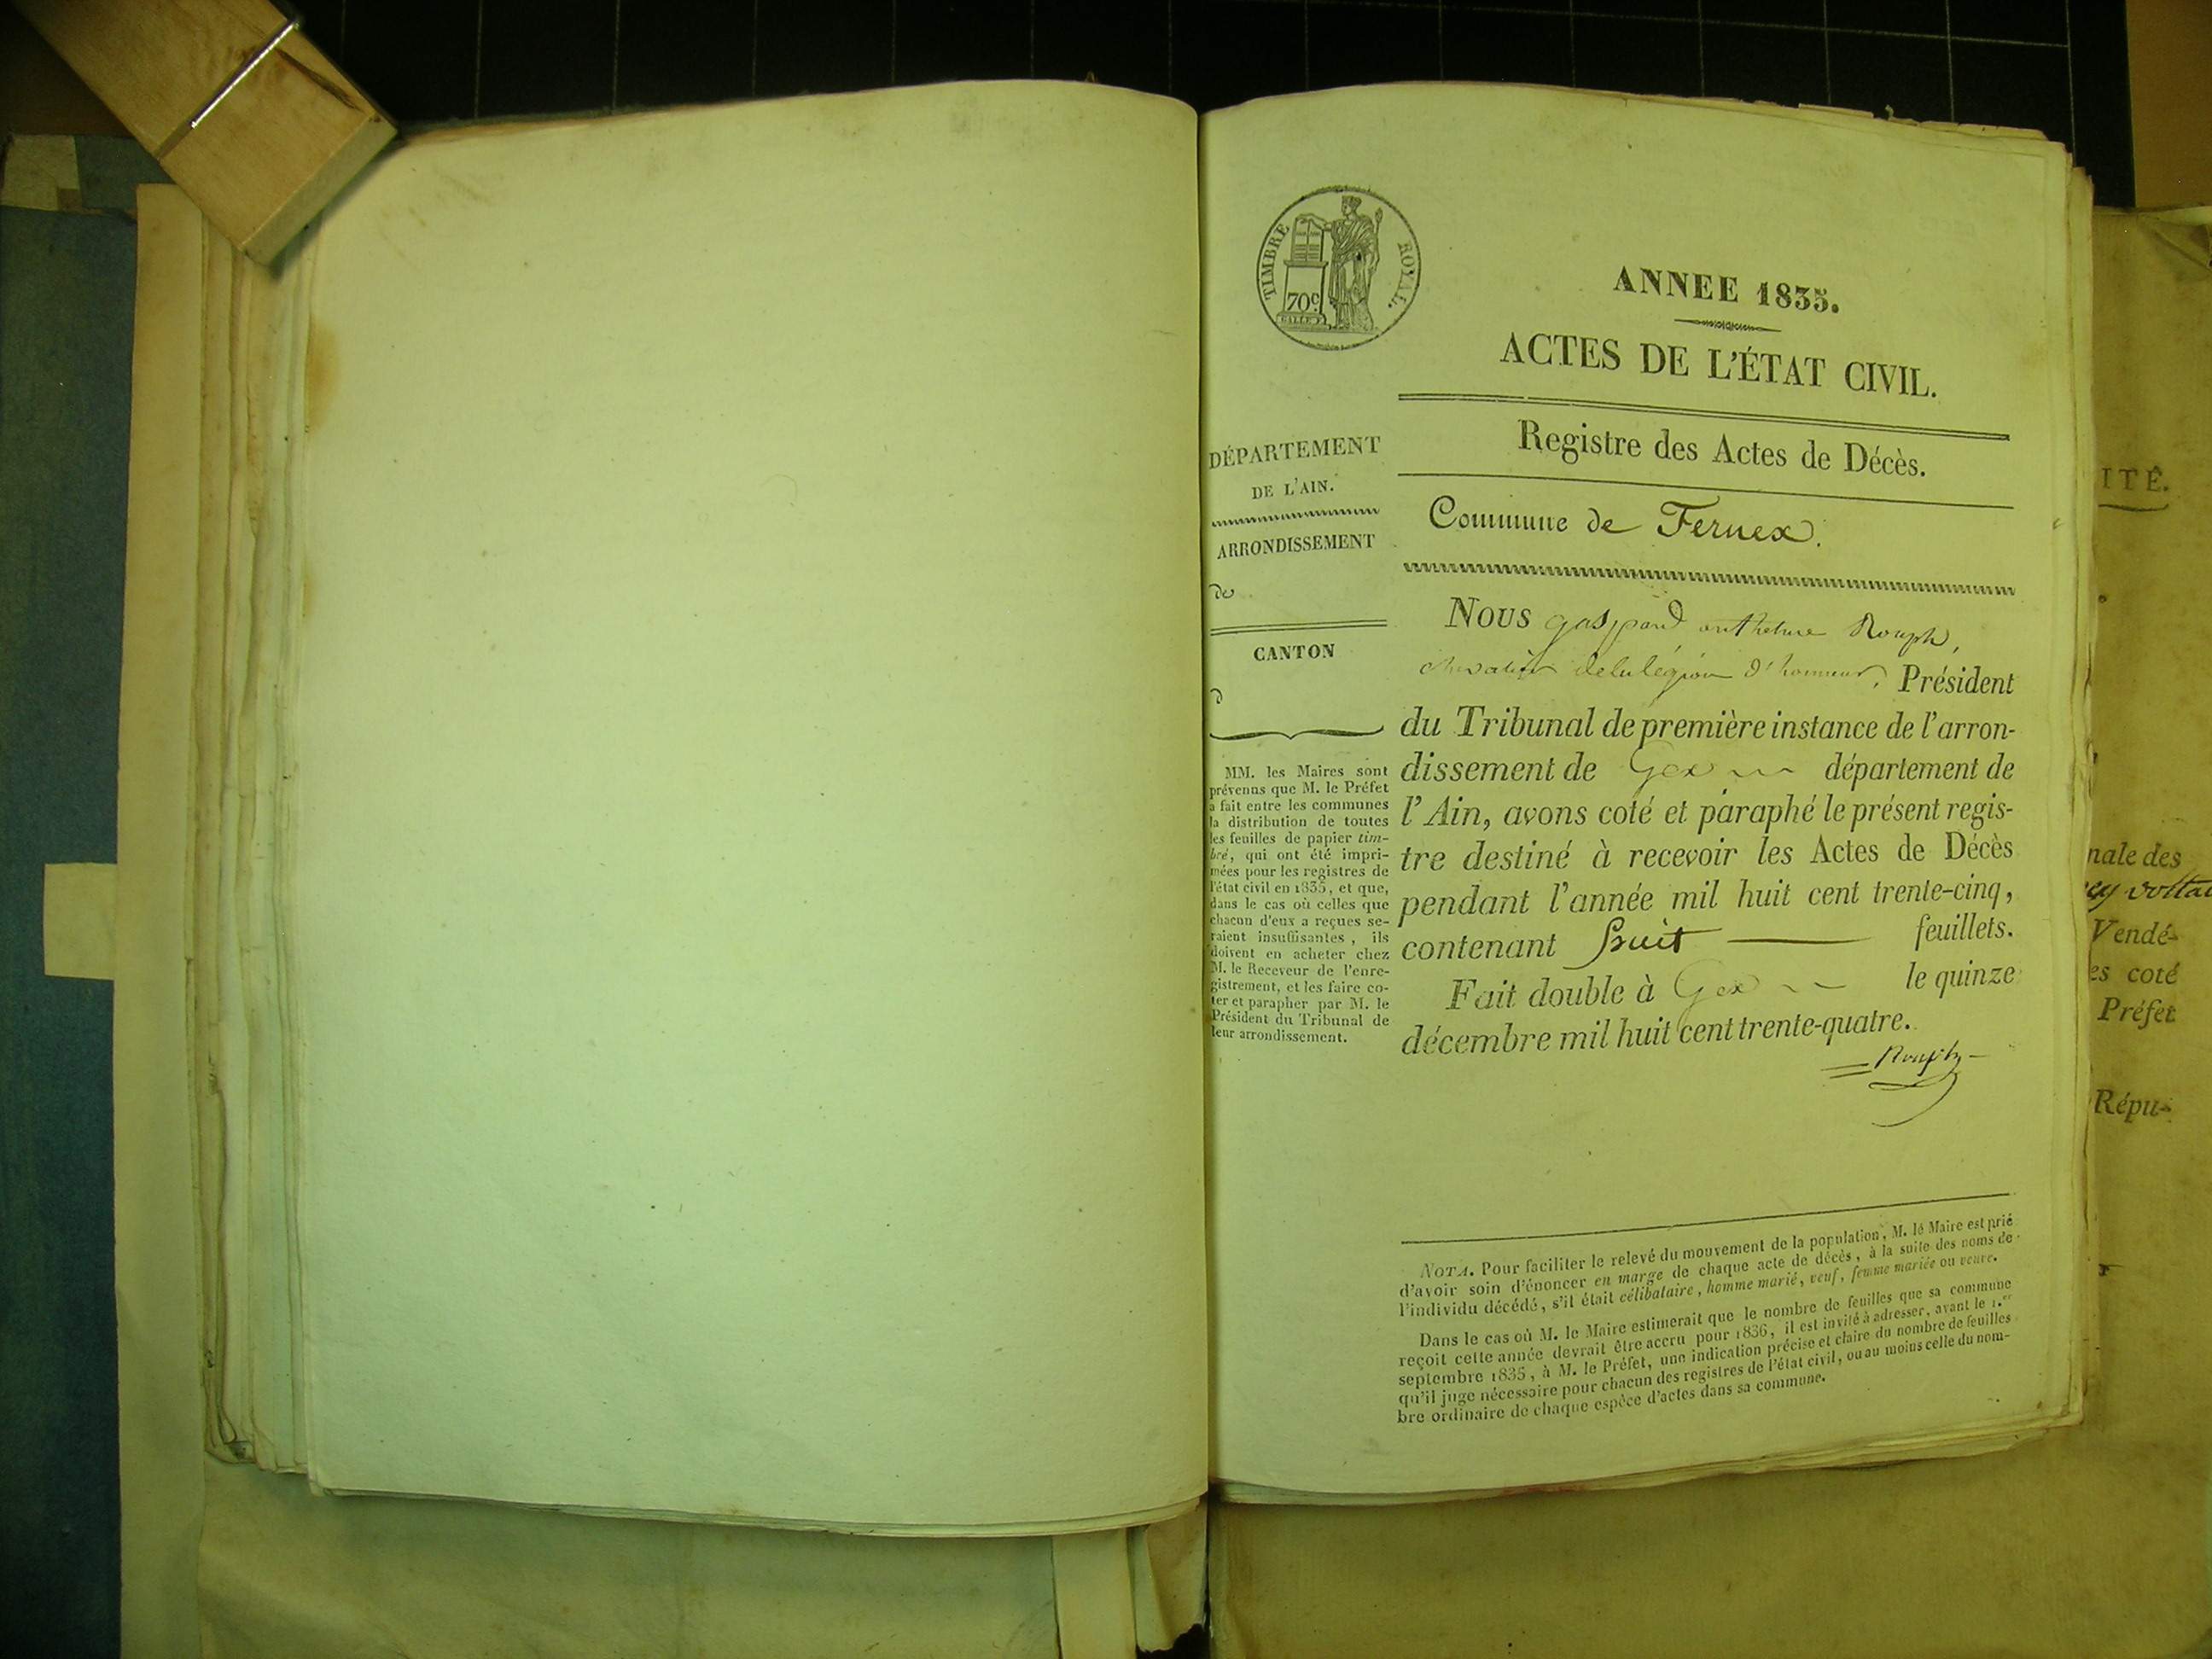 TIMBRE ROYAL
70c
ANNEE 1835.
ACTES DE L'ÉTAT CIVIL.
Registre des Actes de Décès.
Commune de Fernex.
DÉPARTEMENT
DE L'AIN.
ARRONDISSEMENT
de
CANTON
d
MM. les Maires sont
prévenus que M. le Préfet
a fait entre les communes
la distribution de toutes
les feuilles de papier tim-
bré, qui ont été impri-
mées pour les registres de
l'état civil en 1835, et que,
dans le cas où celles que
chacun d'eux a reçues se-
raient insuffisantes, ils
doivent en acheter chez
M. le Receveur de l'enre-
gistrement, et les faire co-
ter et parapher par M. le
Président du Tribunal de
leur arrondissement.
Nous gaspard anthelme Rouph,
chevalier de la légion d'honneur, Président
du Tribunal de première instance de l'arron-
dissement de Gex département de
l'Ain, avons coté et paraphé le présent regis-
tre destiné à recevoir les Actes de Décès
pendant l'année mil huit cent trente-cinq,
contenant huit feuillets.
Fait double à Gex le quinze
décembre mil huit cent trente-quatre.
Rouph
NOTA. Pour faciliter le relevé du mouvement de la population, M. le Maire est prié
d'avoir soin d'énoncer en marge de chaque acte de décès, à la suite des noms de
l'individu décédé, s'il était célibataire, homme marié, veuf, femme mariée ou veuve.
Dans le cas où M. le Maire estimerait que le nombre de feuilles que sa commune
reçoit cette année devrait être accru pour 1836, il est invité à adresser, avant le 1.er
septembre 1835, à M. le Préfet, une indication précise et claire du nombre de feuilles
qu'il juge nécessaire pour chacun des registres de l'état civil, ou au moins celle du nom-
bre ordinaire de chaque espèce d'actes dans sa commune.
ITÉ.
nale des
Vendé-
es coté
Préfet
Répu-